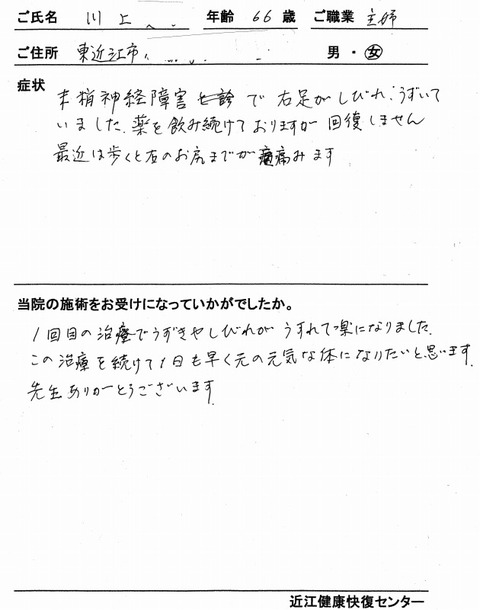 ご氏名 川上 年齢 66 歳 ご職業 主婦
ご住所 東近江市 男・女
症状
末梢神経障害 と診 で 右足がしびれ、うずいて
いました。薬を飲み続けておりますが 回復しません
最近は歩くと右のお尻までが 痛みます
当院の施術をお受けになっていかがでしたか。
1回目の治療でうずきやしびれが うすれて楽になりました。
この治療を続けて1日も早く元の元気な体になりたいと思います。
先生ありがとうございます。
近江健康快復センター